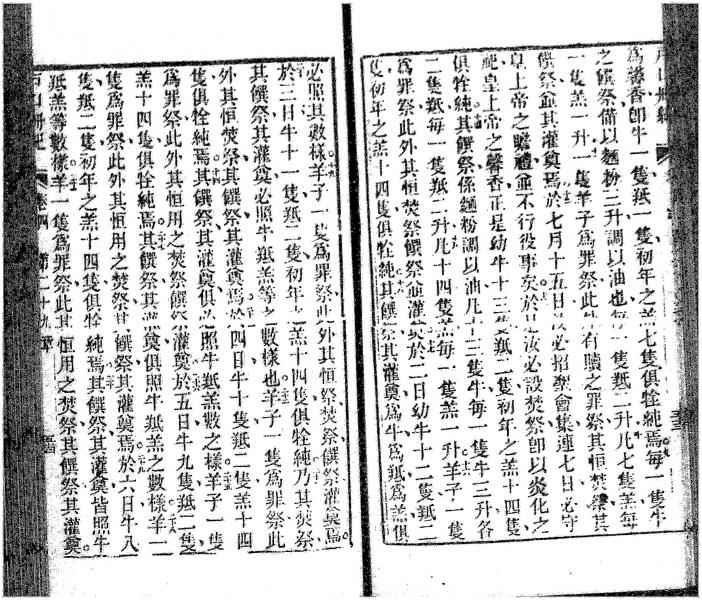 戶口冊紀
爲馨香卽牛一隻羝一隻初年之羔七隻俱牷純焉每一隻牛
之饌祭備以麵粉三升調以油也每一隻羝二升凡七隻羔每
一隻羔一升一隻羊子爲罪祭此外有贖之罪祭其恒焚祭其
饌祭並其灌奠焉於七月十五日汝必招聚會集連七日必守
皇上帝之瞻禮並不行役事矣於是汝必設焚祭卽以炎化之
祀皇上帝之馨香正是幼牛十三隻羝二隻初年之羔十四隻
俱牷純其饌祭係麵粉調以油凡十三隻牛每一隻牛三升各
二隻羝每一隻羝二升凡十四隻羔每一隻羔一升羊子一隻
爲罪祭此外其恒焚祭饌祭並灌奠於二日幼牛十二隻羝二
隻初年之羔十四隻俱牷純其饌祭其灌奠爲牛爲羝爲羔俱
必照其數樣羊子一隻爲罪祭此外其恒祭焚祭饌祭灌奠焉
於三日牛十一隻羝二隻初年之羔十四隻俱牷純乃其焚祭
其饌祭其灌奠必照牛羝羔等之數樣也羊子一隻爲罪祭此
外其恒焚祭其饌祭其灌奠焉於四日牛十隻羝二隻羔十四
隻俱牷純焉其饌祭其灌奠俱必照牛羝羔數之樣羊子一隻
爲罪祭此外其恒用之焚祭饌祭灌奠於五日牛九隻羝二隻
羔十四隻俱牷純焉其饌祭其灌奠俱照牛羝羔之數樣羊一
隻爲罪祭此外其恒用之焚祭其饌祭其灌奠焉於六日牛八
隻羝二隻初年之羔十四隻俱牷純焉其饌祭其灌奠皆照牛
羝羔等數樣羊一隻爲罪祭此其恒用之焚祭其饌祭其灌奠
戶口冊紀 卷四 第二十九章